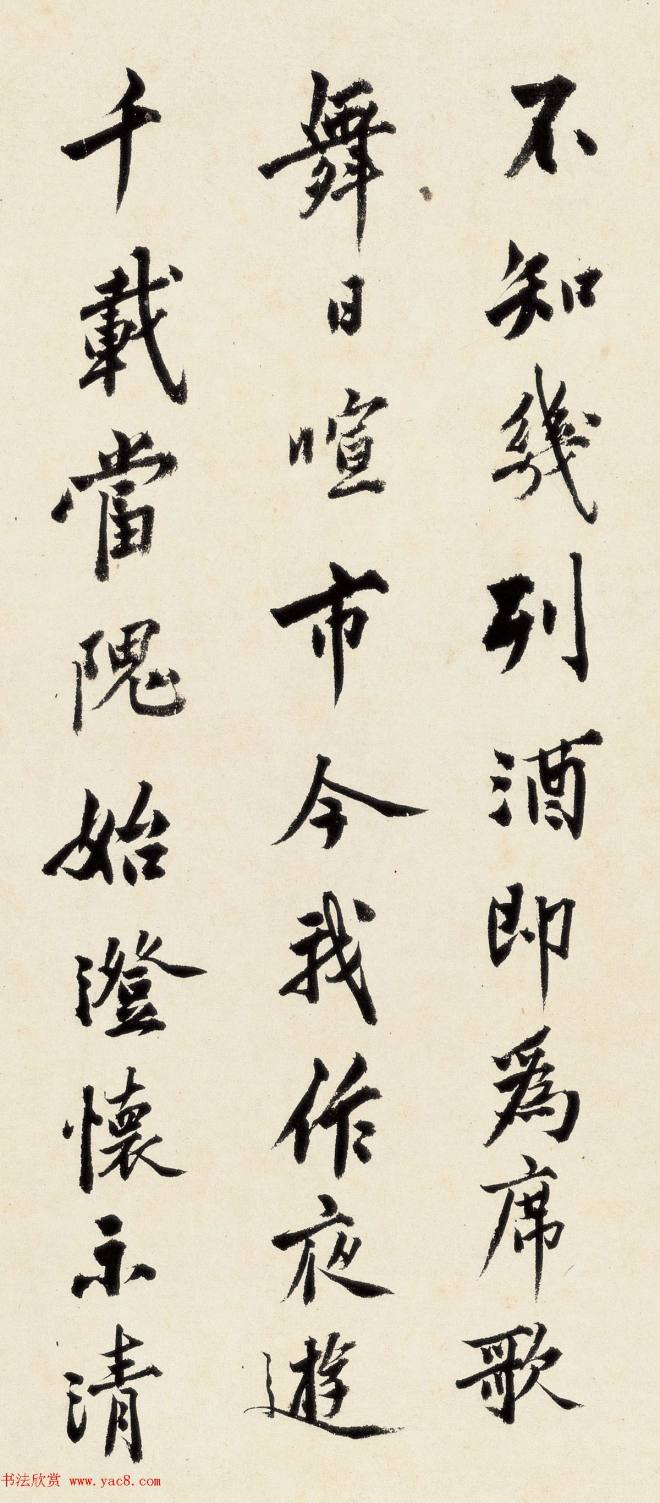 不知幾列酒即為席歌
舞日喧市今我作夜遊
千載當隗始澄懷示清
书法欣赏 www.yac8.com